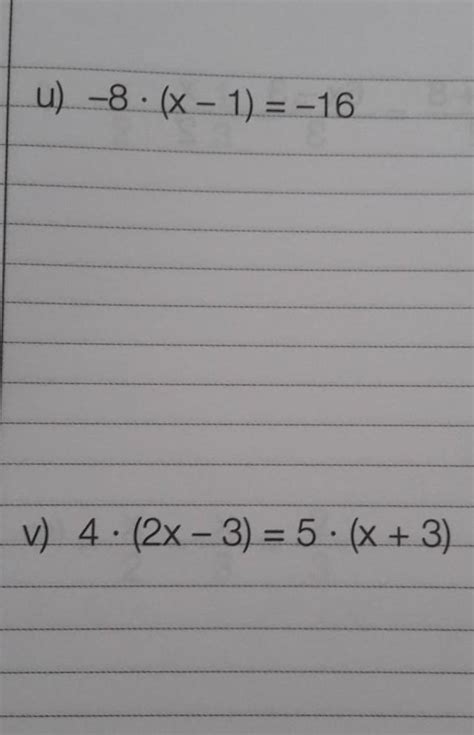 u) –8 · (x – 1) = –16
v) 4 · (2x – 3) = 5 · (x + 3)